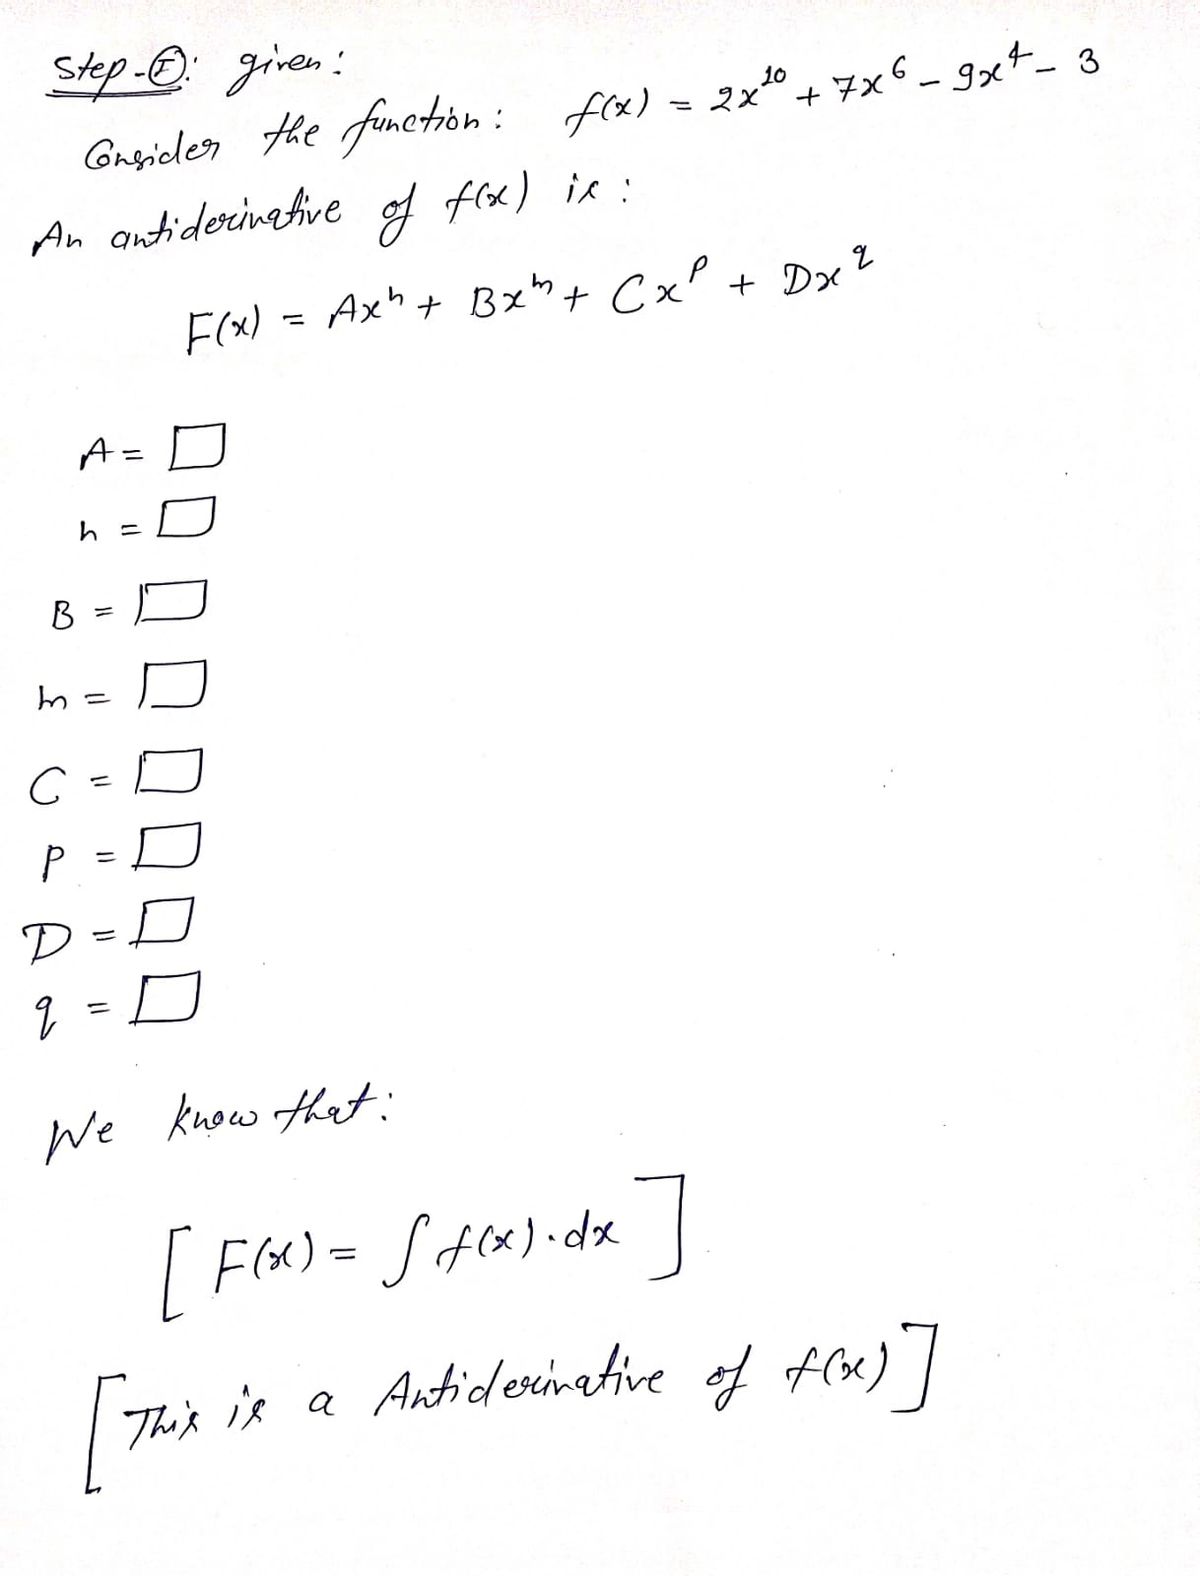 Step-Ⓘ: given:
Consider the function: f(x) = 2x¹⁰ + 7x⁶ - 9x⁴ - 3
An antiderivative of f(x) is:
F(x) = Axⁿ + Bxᵐ + Cxᵖ + Dx^q
A = □
n = □
B = □
m = □
C = □
p = □
D = □
q = □
We know that:
[F(x) = ∫ f(x)·dx]
[This is a Antiderivative of f(x)]